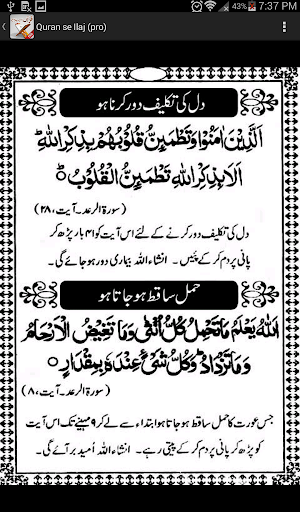 7:37 PM
Quran se Ilaj (pro)
دل کی تکلیف دور کرنا ہو
اَلَّذِیْنَ اٰمَنُوْا وَتَطْمَىِٕنُّ قُلُوْبُهُمْ بِذِكْرِ اللّٰهِؕ
اَلَا بِذِكْرِ اللّٰهِ تَطْمَىِٕنُّ الْقُلُوْبُؕ
(سورۃ الرعد۔ آیت، ۲۸)
دل کی تکلیف دور کرنے کے لئے اس آیت کو ۴۱ بار پڑھ کر
پانی پر دم کر کے پئیں۔ انشاء اللہ بیماری دور ہو جائے گی۔
حمل ساقط ہو جاتا ہو
اَللّٰهُ یَعْلَمُ مَا تَحْمِلُ كُلُّ اُنْثٰى وَمَا تَغِیْضُ الْاَرْحَامُ
وَمَا تَزْدَادُؕ وَكُلُّ شَیْءٍ عِنْدَهٗ بِمِقْدَارٍ
(سورۃ الرعد۔ آیت، ۸)
جس عورت کا حمل ساقط ہو جاتا ہو ابتداء سے لے کر ۹ مہینے تک اس آیت
کو پڑھ کر پانی پر دم کر کے پیتی رہے۔ انشاء اللہ اُمید بر آئے گی۔